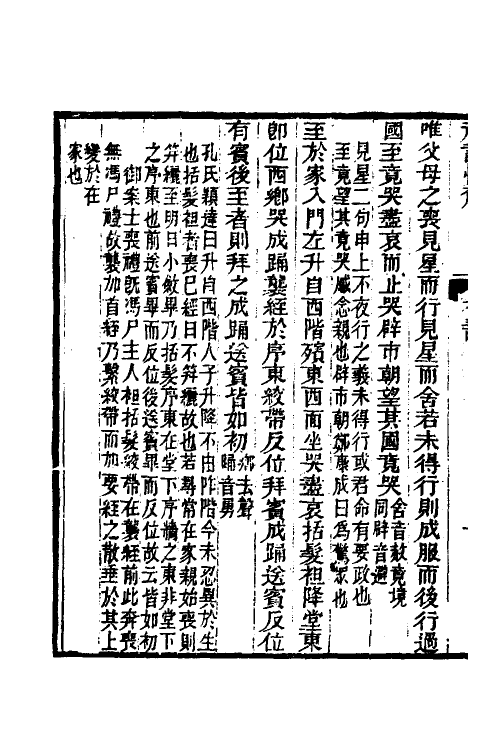 唯父母之喪見星而行見星而舍若未得行則成服而後行過
國至竟哭盡哀而止哭辟市朝望其國竟哭舍音赦竟境
同辟音避
見星二句申上不夜行之義未得行或君命有要政也
至竟望其竟哭感念親也辟市朝鄭康成曰爲驚眾也
至於家入門左升自西階殯東西面坐哭盡哀括髮袒降堂東
卽位西鄉哭成踊襲絰於序東絞帶反位拜賓成踊送賓反位
有賓後至者則拜之成踊送賓皆如初鄉去聲
踊音勇
孔氏穎達曰升自西階人子升降不由阼階今未忍異於生
也括髮袒者喪已經日不笄纚故也若尋常在家親始喪則
笄纚至明日小斂畢乃括髮序東在堂下序牆之東非堂下
之序東也前送賓畢而反位後送賓畢而反位故云皆如初
御案士喪禮旣馮尸主人袒括髮絞帶在襲絰前此奔喪
無馮尸禮故襲加首絰乃繫絞帶而加要絰之散垂於其上
變於在
家也